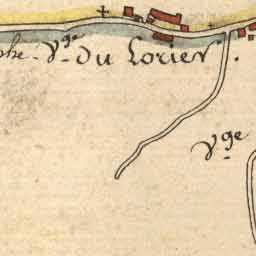 phe. Vge du Lorier.
Vge